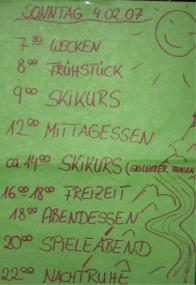 SONNTAG 4.02.07
7 30 WECKEN
8 00 FRÜHSTÜCK
9 00 SKIKURS
12 00 MITTAGESSEN
ca. 14 00 SKIKURS (SKILEHRER FRAGEN)
16 00 - 18 00 FREIZEIT
18 00 ABENDESSEN
20 00 SPIELEABEND
22 00 NACHTRUHE